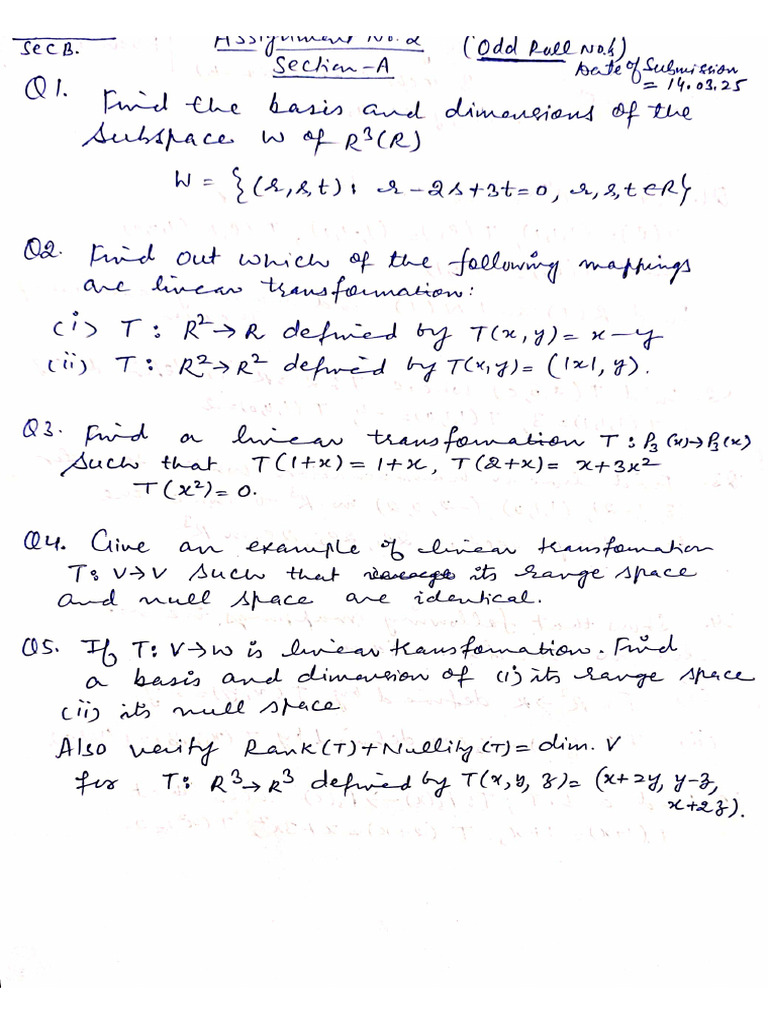 Sec B.
Assignment No. 2 (Odd Roll No.s)
Section-A
Date of Submission
= 14.03.25
Q1. Find the basis and dimensions of the
subspace W of R³(R)
W = {(r,s,t) : r-2s+3t=0, r,s,t∈R}
Q2. Find out which of the following mappings
are linear transformation:
(i) T: R²→R defined by T(x,y)= x-y
(ii) T: R²→R² defined by T(x,y)= (|x|, y).
Q3. Find a linear transformation T: P₃(x)→P₃(x)
such that T(1+x)=1+x, T(2+x)= x+3x²
T(x²)=0.
Q4. Give an example of linear transfomation
T: V→V such that its range space
and null space are identical.
Q5. If T: V→W is linear transfomation. Find
a basis and dimension of (i) its range space
(ii) its null space
Also verify Rank(T)+Nullity(T)= dim. V
for T: R³→R³ defined by T(x,y,z)= (x+2y, y-z,
x+2z).